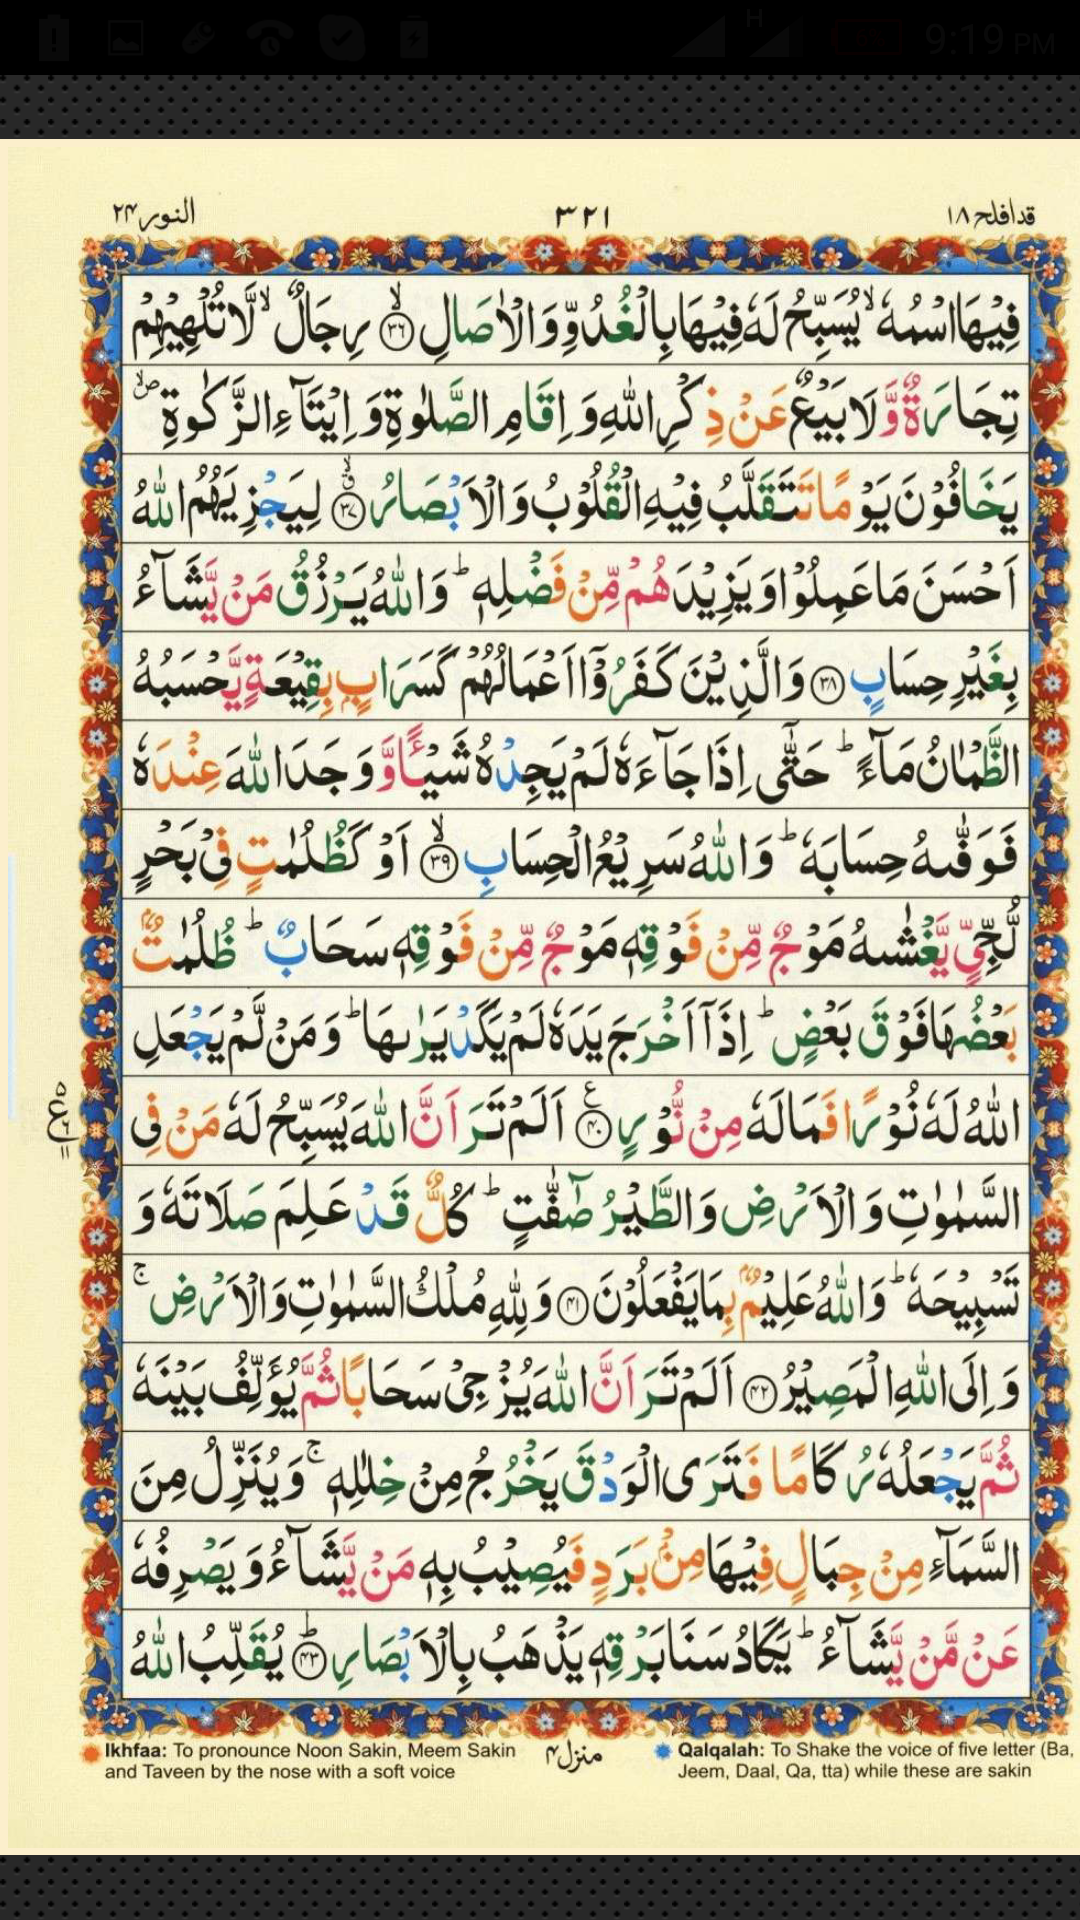 9:19 PM
H
النور ۲۴
۳۲۱
قد افلح ۱۸
فِیْهَا اسْمُهٗ ۙ یُسَبِّحُ لَهٗ فِیْهَا بِالْغُدُوِّ وَ الْاٰصَالِ ۙ﴿۳۶﴾ رِجَالٌ ۙ لَّا تُلْهِیْهِمْ
تِجَارَةٌ وَّ لَا بَیْعٌ عَنْ ذِكْرِ اللّٰهِ وَ اِقَامِ الصَّلٰوةِ وَ اِیْتَآءِ الزَّكٰوةِ ۪ۙ
یَخَافُوْنَ یَوْمًا تَتَقَلَّبُ فِیْهِ الْقُلُوْبُ وَ الْاَبْصَارُ ﴿ۙ۳۷﴾ لِیَجْزِیَهُمُ اللّٰهُ
اَحْسَنَ مَا عَمِلُوْا وَ یَزِیْدَهُمْ مِّنْ فَضْلِهٖ ؕ وَ اللّٰهُ یَرْزُقُ مَنْ یَّشَآءُ
بِغَیْرِ حِسَابٍ ﴿۳۸﴾ وَ الَّذِیْنَ كَفَرُوْۤا اَعْمَالُهُمْ كَسَرَابٍۭ بِقِیْعَةٍ یَّحْسَبُهُ
الظَّمْاٰنُ مَآءً ؕ حَتّٰۤی اِذَا جَآءَهٗ لَمْ یَجِدْهُ شَیْـًٔا وَّ وَجَدَ اللّٰهَ عِنْدَهٗ
فَوَفّٰىهُ حِسَابَهٗ ؕ وَ اللّٰهُ سَرِیْعُ الْحِسَابِ ﴿ۙ۳۹﴾ اَوْ كَظُلُمٰتٍ فِیْ بَحْرٍ
لُّجِّیٍّ یَّغْشٰىهُ مَوْجٌ مِّنْ فَوْقِهٖ مَوْجٌ مِّنْ فَوْقِهٖ سَحَابٌ ؕ ظُلُمٰتٌۢ
بَعْضُهَا فَوْقَ بَعْضٍ ؕ اِذَاۤ اَخْرَجَ یَدَهٗ لَمْ یَكَدْ یَرٰىهَا ؕ وَ مَنْ لَّمْ یَجْعَلِ
اللّٰهُ لَهٗ نُوْرًا فَمَا لَهٗ مِنْ نُّوْرٍ ﴿۴۰﴾ۧ اَلَمْ تَرَ اَنَّ اللّٰهَ یُسَبِّحُ لَهٗ مَنْ فِی
السَّمٰوٰتِ وَ الْاَرْضِ وَ الطَّیْرُ صٰٓفّٰتٍ ؕ كُلٌّ قَدْ عَلِمَ صَلَاتَهٗ وَ
تَسْبِیْحَهٗ ؕ وَ اللّٰهُ عَلِیْمٌۢ بِمَا یَفْعَلُوْنَ ﴿۴۱﴾ وَ لِلّٰهِ مُلْكُ السَّمٰوٰتِ وَ الْاَرْضِ ۚ
وَ اِلَی اللّٰهِ الْمَصِیْرُ ﴿۴۲﴾ اَلَمْ تَرَ اَنَّ اللّٰهَ یُزْجِیْ سَحَابًا ثُمَّ یُؤَلِّفُ بَیْنَهٗ
ثُمَّ یَجْعَلُهٗ رُكَامًا فَتَرَی الْوَدْقَ یَخْرُجُ مِنْ خِلٰلِهٖ ۚ وَ یُنَزِّلُ مِنَ
السَّمَآءِ مِنْ جِبَالٍ فِیْهَا مِنْۢ بَرَدٍ فَیُصِیْبُ بِهٖ مَنْ یَّشَآءُ وَ یَصْرِفُهٗ
عَنْ مَّنْ یَّشَآءُ ؕ یَكَادُ سَنَا بَرْقِهٖ یَذْهَبُ بِالْاَبْصَارِ ﴿ؕ۴۳﴾ یُقَلِّبُ اللّٰهُ
Ikhfaa: To pronounce Noon Sakin, Meem Sakin
and Taveen by the nose with a soft voice
منزل ۴
Qalqalah: To Shake the voice of five letter (Ba,
Jeem, Daal, Qa, tta) while these are sakin